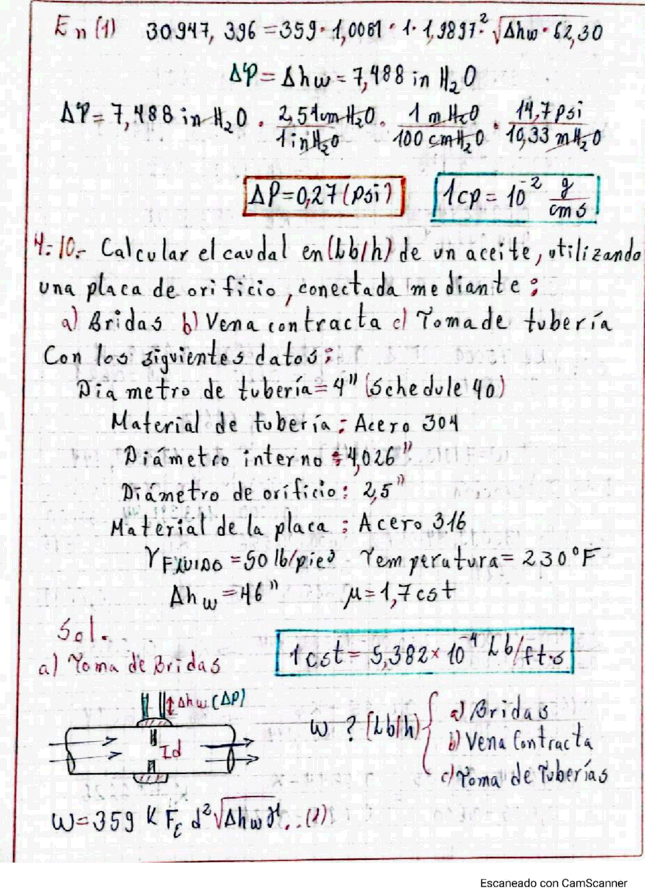 En (1) 30947,396 = 359 · 1,0061 · 1 · 1,9897² √Δhw · 62,30
ΔP = Δhw = 7,488 in H₂O
ΔP = 7,488 in H₂O · 2,54 cm H₂O / 1 in H₂O · 1 m H₂O / 100 cm H₂O · 14,7 psi / 10,33 m H₂O
ΔP = 0,27 (psi) 1cp = 10⁻² g / cm s
4-10.- Calcular el caudal en (Lb/h) de un aceite, utilizando
una placa de orificio, conectada mediante:
a) Bridas b) Vena contracta c) Toma de tubería
Con los siguientes datos:
Diametro de tubería = 4" (Schedule 40)
Material de tubería: Acero 304
Diámetro interno = 4,026"
Diámetro de orificio: 2,5"
Material de la placa: Acero 316
γ FLUIDO = 50 lb/pie³ Temperatura = 230°F
Δhw = 46" μ = 1,7 cst
Sol.
1 cst = 5,382 × 10⁻⁴ Lb/ft·s
a) Toma de Bridas
Δhw (ΔP)
Id
W ? (Lb/h) { a) Bridas
b) Vena Contracta
c) Toma de Tuberías
W = 359 K Fc d² √Δhw γ ... (1)
Escaneado con CamScanner